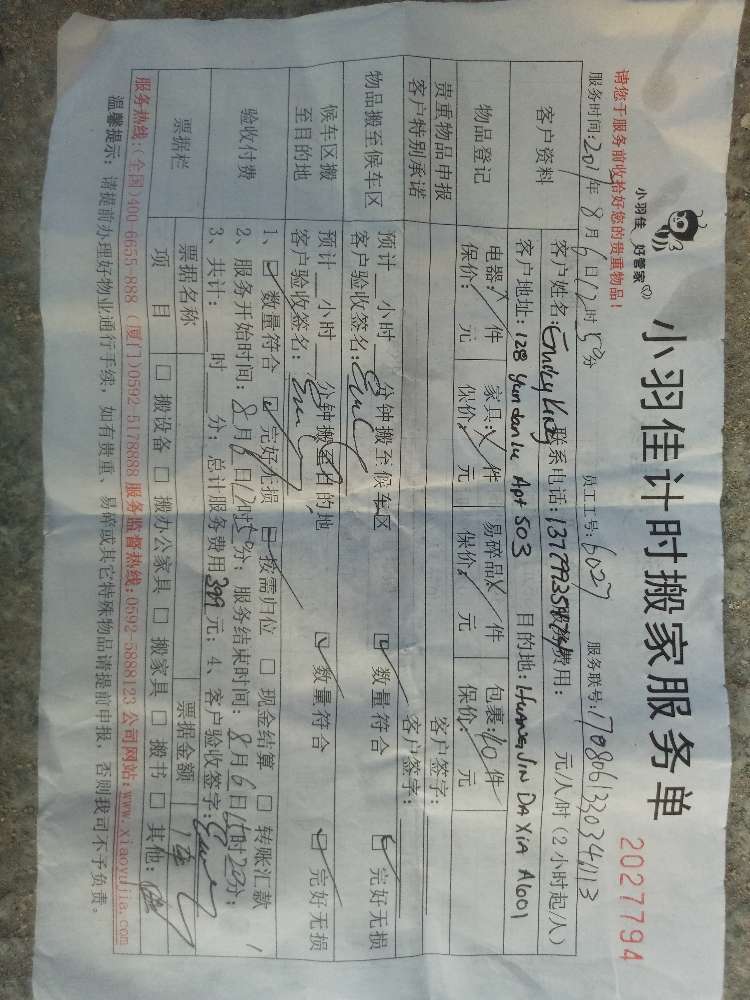 小羽佳 好管家
小羽佳计时搬家服务单
2027794
请您于服务前收拾好您的贵重物品!
服务时间:2017年8月6日12时50分 员工工号:6027 服务联号:
客户资料
客户姓名: 联系电话: 服务费用: 元/人/时(2小时起/人)
客户地址:128 yundanlu Apt 503 目的地:HuangJin DAXiA A1601
物品登记
电器: 件 家具: 件 易碎品 件 包裹:40件
保价: 元 保价: 元 保价: 元 保价: 元
贵重物品申报 客户签字:
客户特别承诺 客户签字:
物品搬至候车区
预计 小时 分钟搬至候车区 ☑ 数量符合 ☑ 完好无损
客户验收签名:
候车区搬至目的地
预计 小时 分钟搬至目的地 ☑ 数量符合 ☑ 完好无损
客户验收签名:
验收付费
1、☑ 数量符合 ☑ 完好无损 ☑ 按需归位 □ 现金结算 □ 转账汇款
2、服务开始时间:8月6日12时50分;服务结束时间:8月6日15时20分;
3、共计: 时 分;总计服务费用399元;4、客户验收签字:
票据栏
票据名称 票据金额
项目 □ 搬设备 □ 搬办公家具 □ 搬家具 □ 搬书 □ 其他:
服务热线:(全国)400-6655-888 (厦门)0592-5178888 服务监督热线:0592-5888123 公司网站:www.xiaoyujia.com
温馨提示:请提前办理好物业通行手续,如有贵重、易碎或其它特殊物品请提前申报,否则我司不予负责。